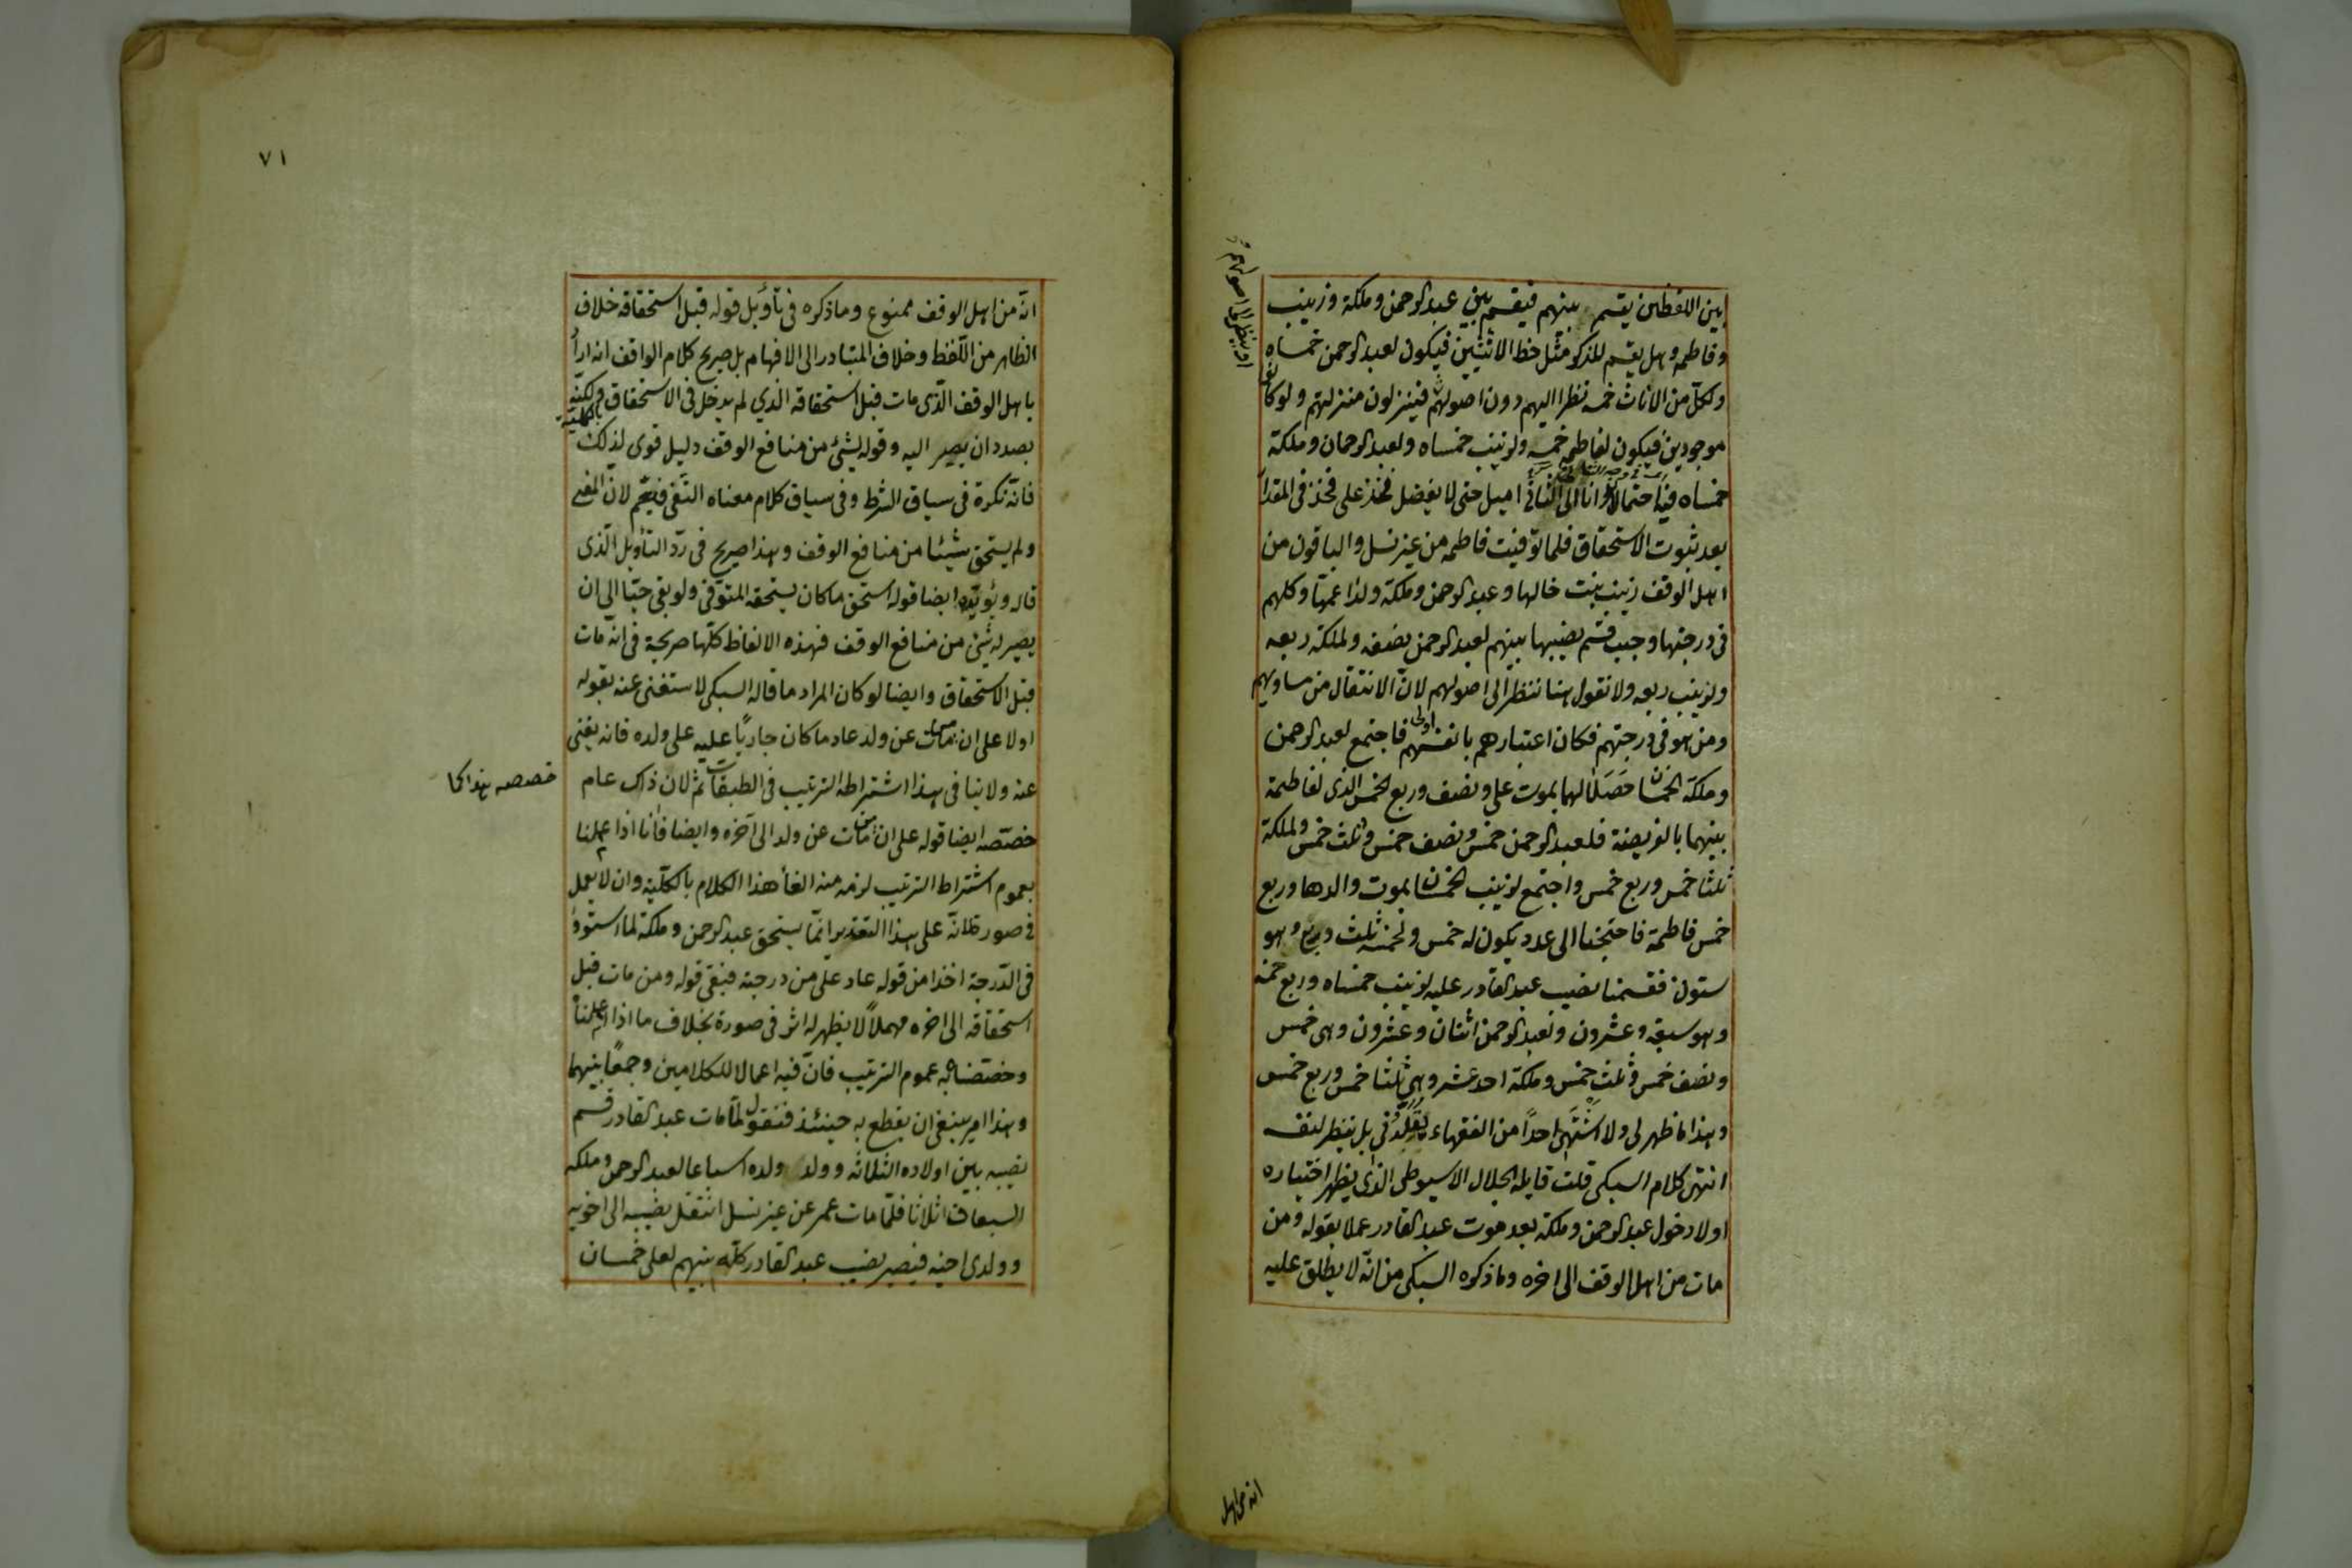 بين اللفظين يقسم بينهم فيقسم بين عبد الرحمن وملكة وزينب
وفاطمه وهل يقسم للذكر مثل حظ الانثيين فيكون لعبد الرحمن خمساه
ولكل من الاناث خمسه نظرا اليهم دون اصولهم فينزلون منزلتهم ولو كانوا
او ينظر الى اصولهم
موجودين فيكون لفاطمه خمسه ولزينب خمساه ولعبد الرحمان وملكة
خمساه فيه احتمال وانا الى الثاني اميل حتى لا يفضل فخذ على فخذ في المقدار
بعد ثبوت الاستحقاق فلما توفيت فاطمه من غير نسل والباقون من
اهل الوقف زينب بنت خالها وعبد الرحمن وملكة ولدا عمتها وكلهم
في درجتها وجب قسم نصيبها بينهم لعبد الرحمن نصفه ولملكة ربعه
ولزينب ربعه ولا نقول هنا ننظر الى اصولهم لان الانتقال من مساويهم
ومن هو في درجتهم فكان اعتبارهم بانفسهم اولى فاجتمع لعبد الرحمن
وملكة الخمسان حصلا لهما بموت علي ونصف وربع الخمس الذي لفاطمة
بينهما بالفريضة فلعبد الرحمن خمس ونصف خمس وثلث خمس ولملكة
ثلثا خمس وربع خمس واجتمع لزينب الخمسان بموت والدها وربع
خمس فاطمة فاحتجنا الى عدد يكون له خمس ولخمسه ثلث وربع وهو
ستون فقسمنا نصيب عبد القادر عليه لزينب خمساه وربع خمسه
وهو سبعة وعشرون ولعبد الرحمن اثنان وعشرون وهي خمس
ونصف خمس وثلث خمس وملكة احد عشر وهي ثلثا خمس وربع خمس
وهذا ما ظهر لي ولا اشتهي احدا من الفقهاء يقلدني بل ينظر لنفسه
انتهى كلام السبكي قلت قايله الجلال الاسيوطي الذي يظهر اختياره
اولا دخول عبد الرحمن وملكة بعد موت عبد القادر عملا بقوله ومن
مات من اهل الوقف الى اخره وما ذكره السبكي من انه لا يطلق عليه
انه من اهل
٧١
انه من اهل الوقف ممنوع وما ذكره في تأويل قوله قبل استحقاقه خلاف
الظاهر من اللفظ وخلاف المتبادر الى الافهام بل صريح كلام الواقف انه اراد
باهل الوقف الذي مات قبل استحقاقه الذي لم يدخل في الاستحقاق بالكلية ولكنه
بصدد ان يصير اليه وقوله لشئ من منافع الوقف دليل قوى لذلك
فانه نكرة في سياق الشرط وفي سياق كلام معناه النفي فيعم لان المعنى
ولم يستحق شيئا من منافع الوقف وهذا صريح في رد التأويل الذى
قاله ويؤيده ايضا قوله استحق ما كان يستحقه المتوفى ولو بقي حيا الى ان
يصير له شئ من منافع الوقف فهذه الالفاظ كلها صريحة في انه مات
قبل الاستحقاق وايضا لو كان المراد ما قاله السبكي لاستغنى عنه بقوله
اولا على ان من مات عن ولد عاد ما كان جاريا عليه على ولده فانه يغني
عنه ولا ينافي هذا اشتراطه الترتيب في الطبقات بثم لان ذاك عام
خصصه هذا كما
خصصه ايضا قوله على ان من مات عن ولد الى آخره وايضا فانا اذا عملنا
بعموم اشتراط الترتيب لزم منه الغأ هذا الكلام بالكلية وان لا يعمل
في صورة لانه على هذا التقدير انما يستحق عبد الرحمن وملكة لما استووا
في الدرجة اخذا من قوله عاد على من في درجته فبقي قوله ومن مات قبل
استحقاقه الى اخره مهملا لا يظهر له اثر في صورة بخلاف ما اذا اعملناه
وخصصنا به عموم الترتيب فان فيه اعمالا للكلامين وجمعا بينهما
وهذا امر ينبغي ان يقطع به حينئذ فنقول لما مات عبد القادر قسم
نصيبه بين اولاده الثلاثه وولد ولده اسباعا لعبد الرحمن وملكه
السبعان اثلاثا فلما مات عمر عن غير نسل انتقل نصيبه الى اخويه
وولدى اخيه فيصير نصيب عبد القادر كله بينهم لعلى خمسان